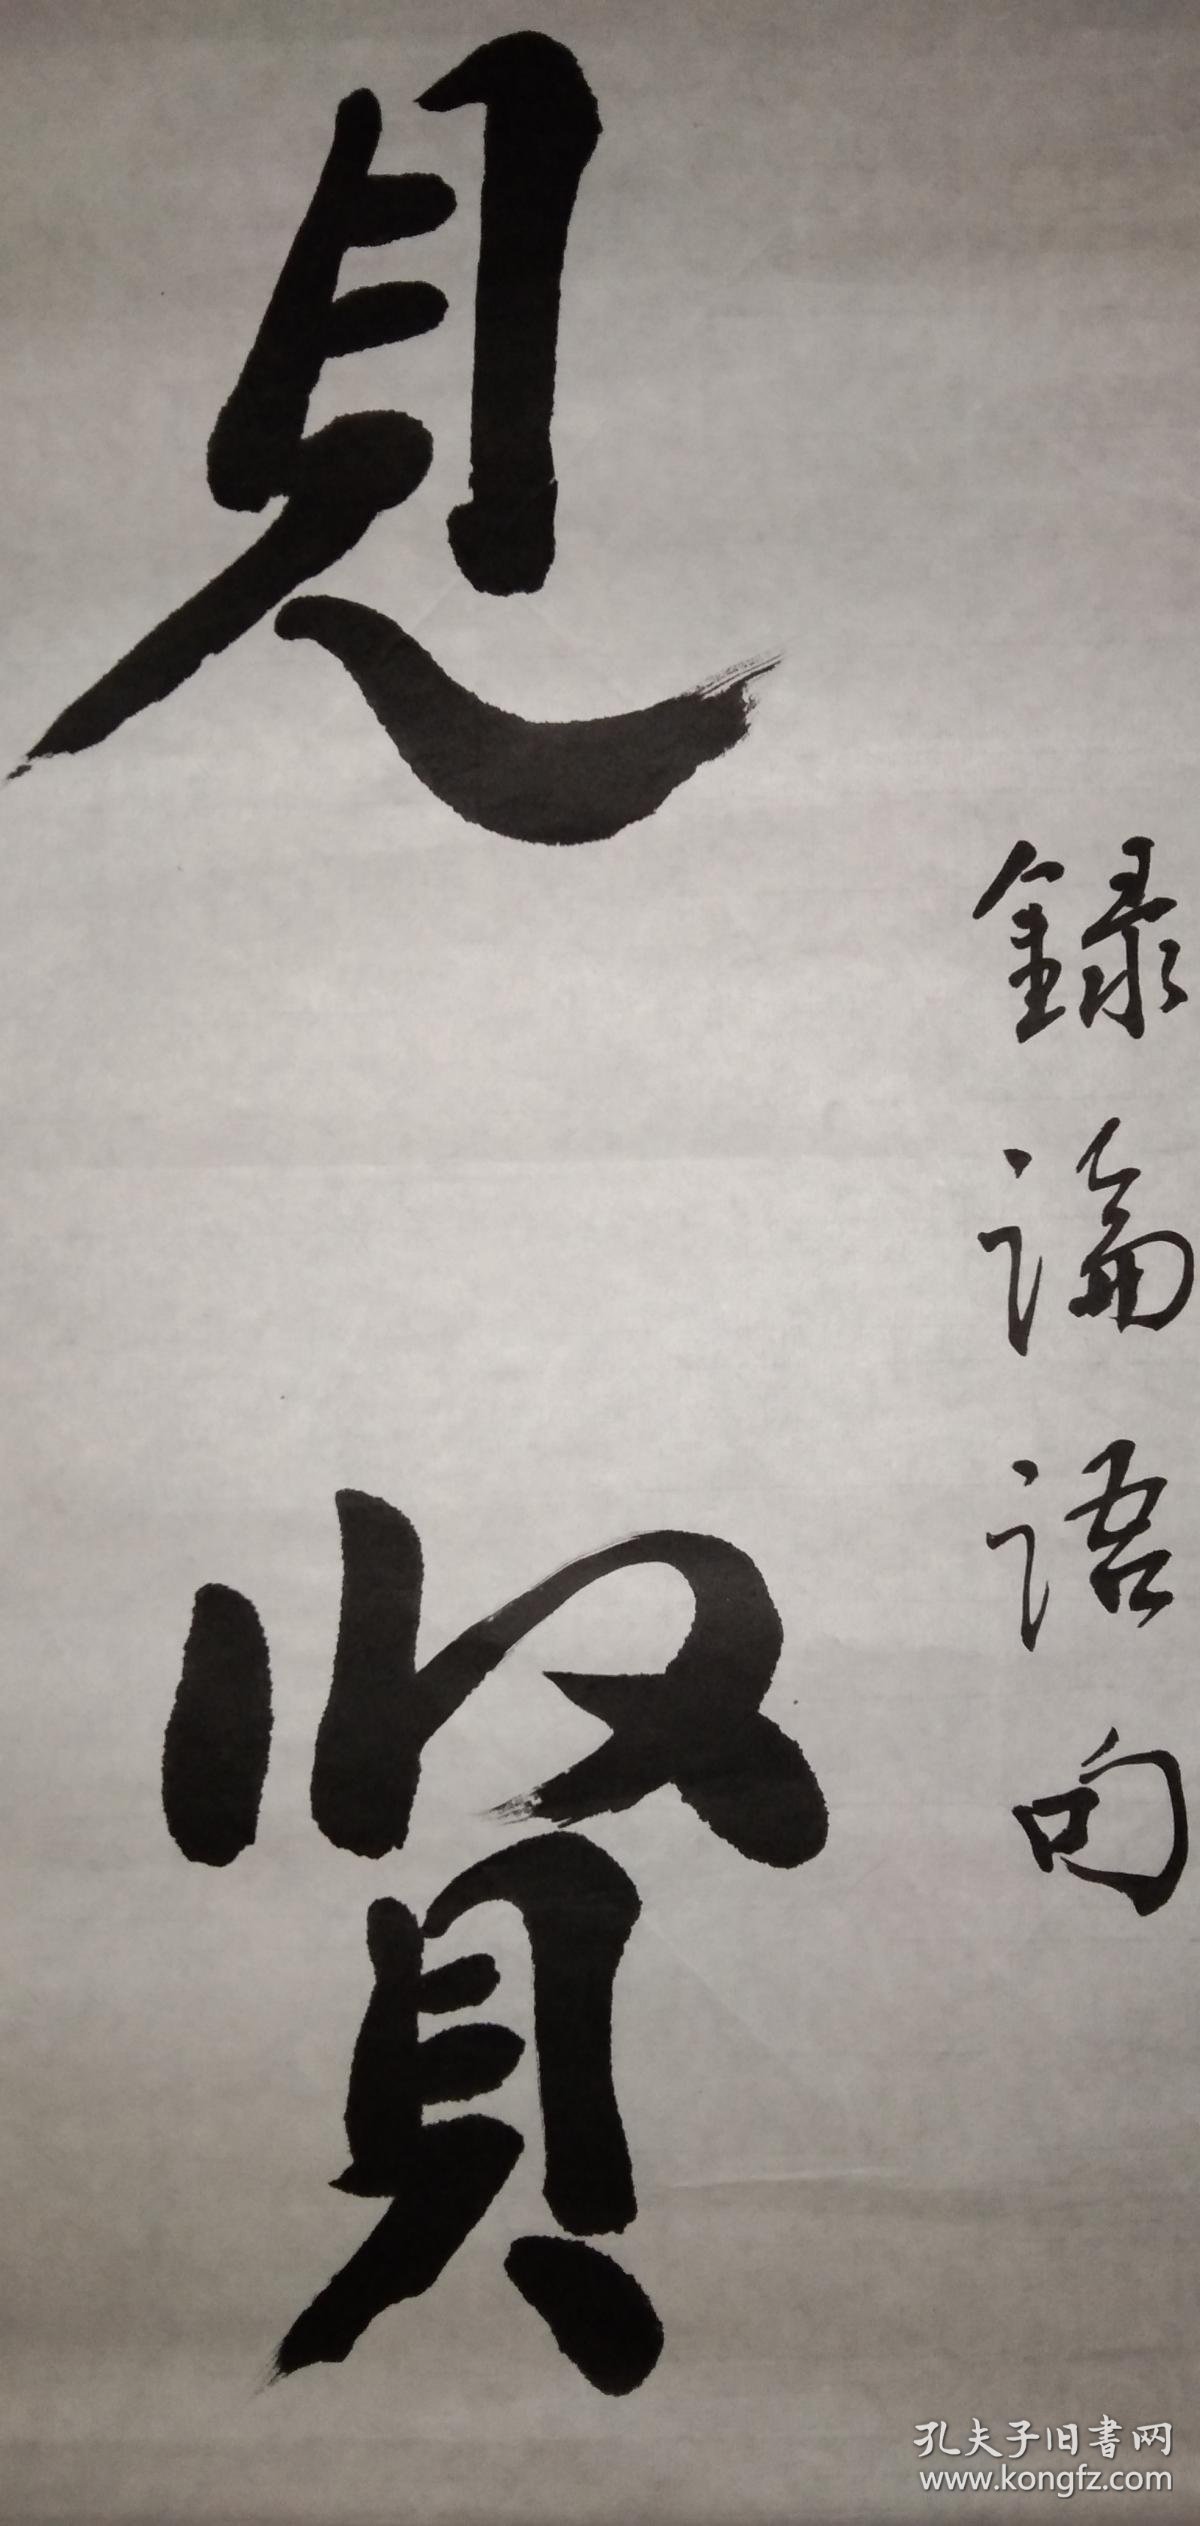 錄論語句
見賢
孔夫子旧書网
www.kongfz.com